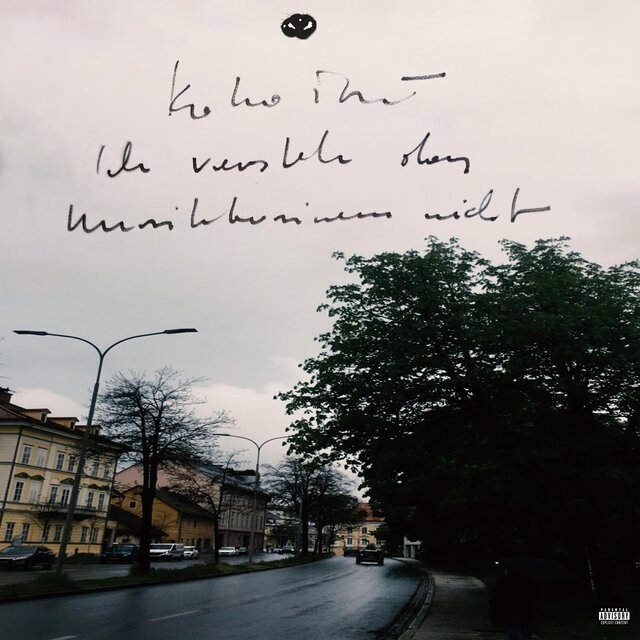 Ich versteh das
Musikbusiness nicht
PARENTAL
ADVISORY
EXPLICIT CONTENT